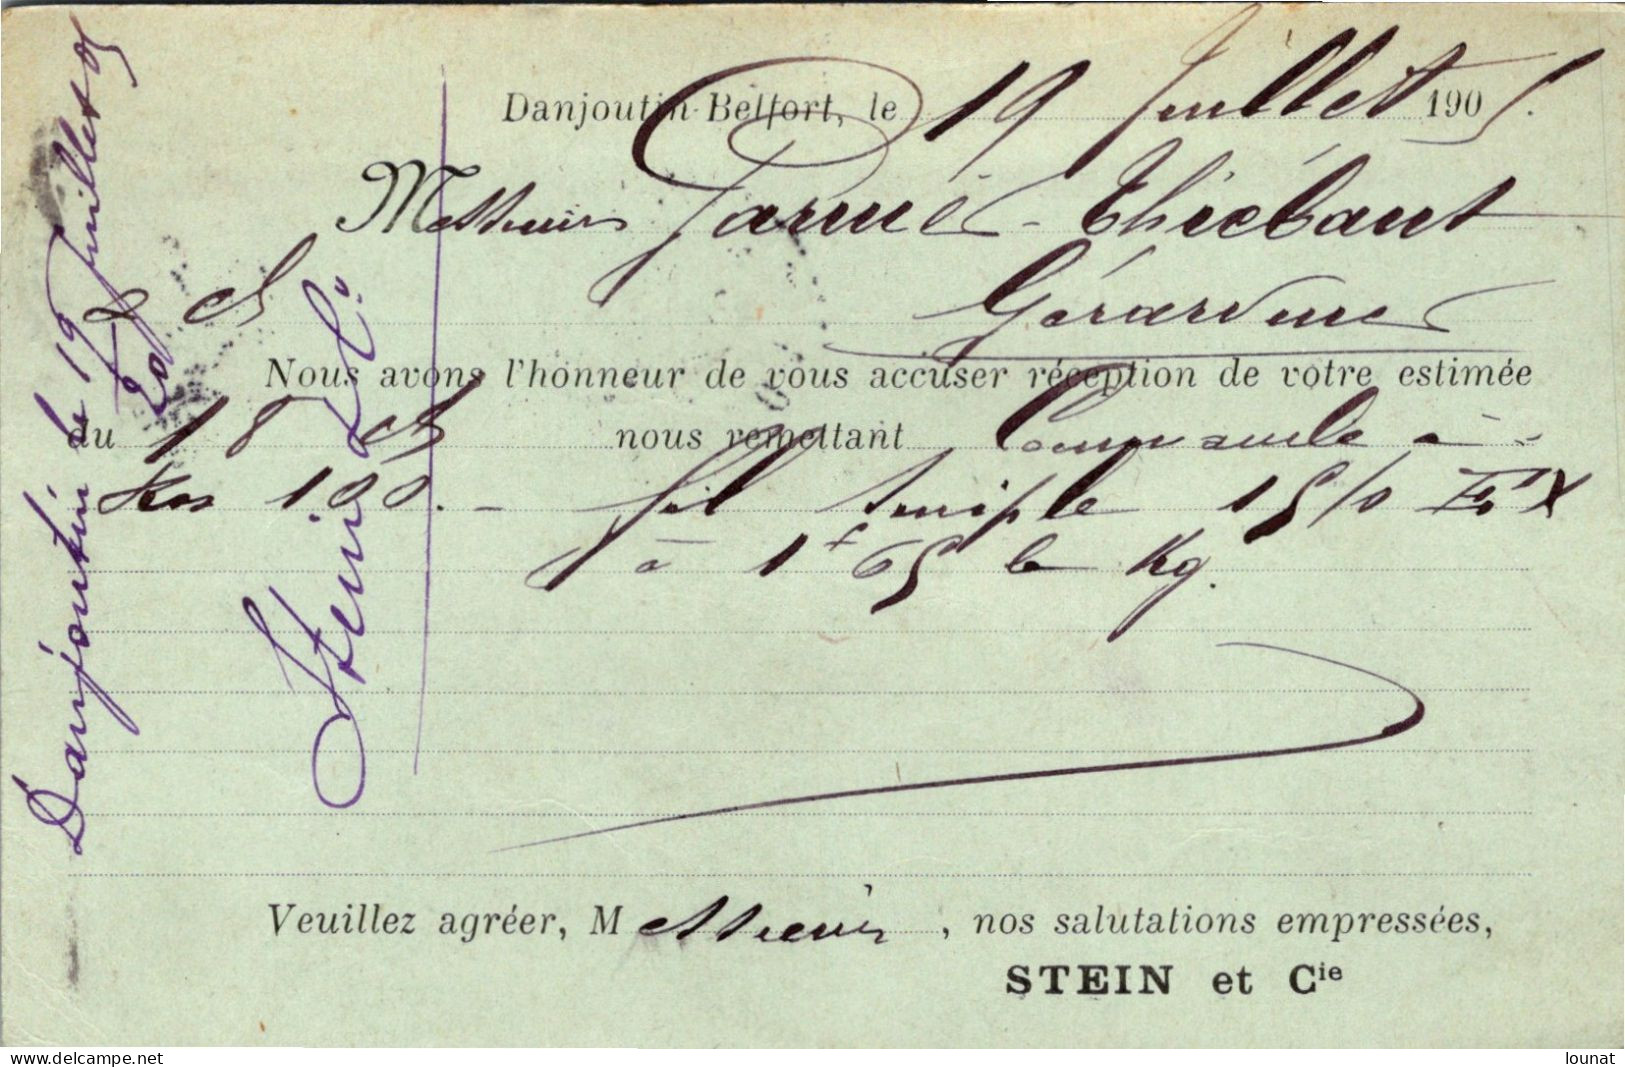 Danjoutin-Belfort, le 19 Juillet 1905.
Messieurs Garnier-Thiébaut
Gérardmer
Nous avons l'honneur de vous accuser réception de votre estimée
du 18 ct nous remettant Commande à
Kos 100. - fil simple 15/0
à 1f 65 le Kg.
Veuillez agréer, Messieurs, nos salutations empressées,
STEIN et Cie
Danjoutin le 19 Juillet 05
20
Stein & Co
www.delcampe.net
lounat